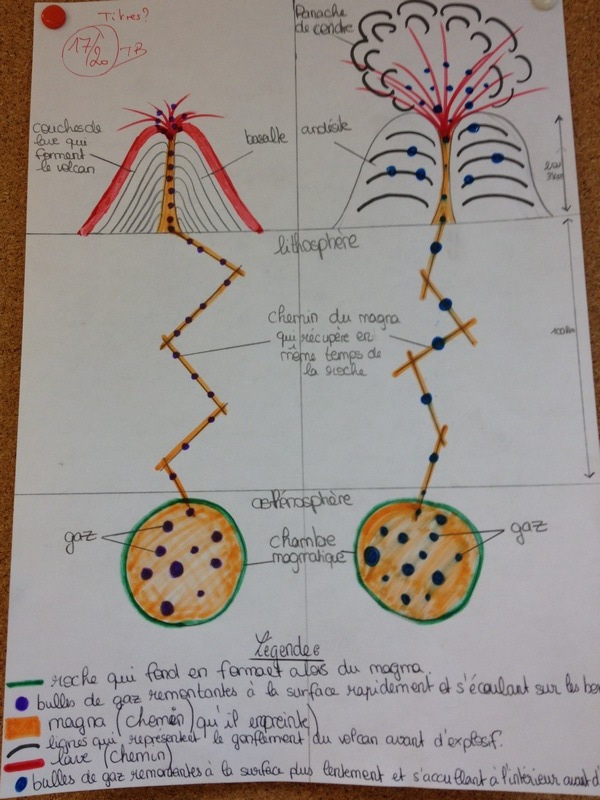 Titres?
17/20 TB
Panache
de cendre
couches de
lave qui
forment
le volcan
basalte
andésite
lithosphère
chemin du magna
qui récupère en
même temps de
la roche
100km
asthénosphère
gaz
chambe
magmatique
gaz
Légende
roche qui fond en formant alors du magma.
bulles de gaz remontantes à la surface rapidement et s'écoulant sur les
magna (chemin qu'il enpreinte)
lignes qui représentent le gonflement du volcan avant d'explosif.
lave (chemin)
bulles de gaz remontantes à la surface plus lentement et à l'intérieur avant